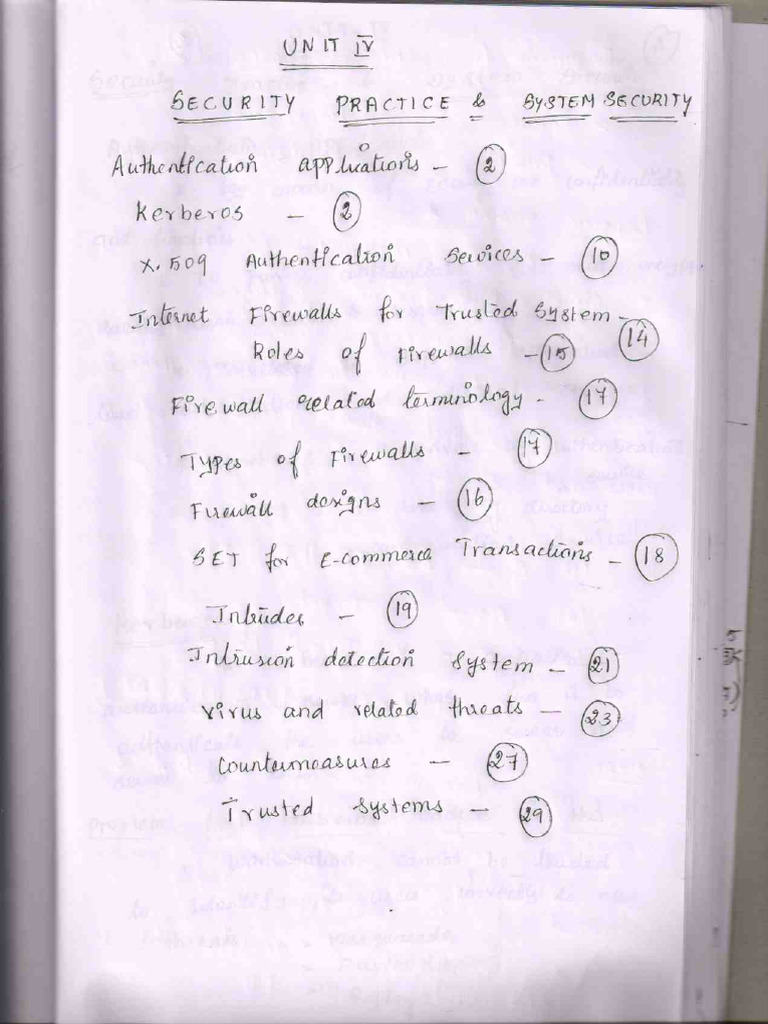 UNIT IV
SECURITY PRACTICE & SYSTEM SECURITY
Authentication applications - 2
Kerberos - 2
X.509 Authentication Services - 10
Internet Firewalls for Trusted System - 14
Roles of Firewalls - 15
Firewall related terminology - 17
Types of Firewalls - 17
Firewall designs - 16
SET for E-commerce Transactions - 18
Intruder - 19
Intrusion detection System - 21
Virus and related threats - 23
Countermeasures - 27
Trusted Systems - 29